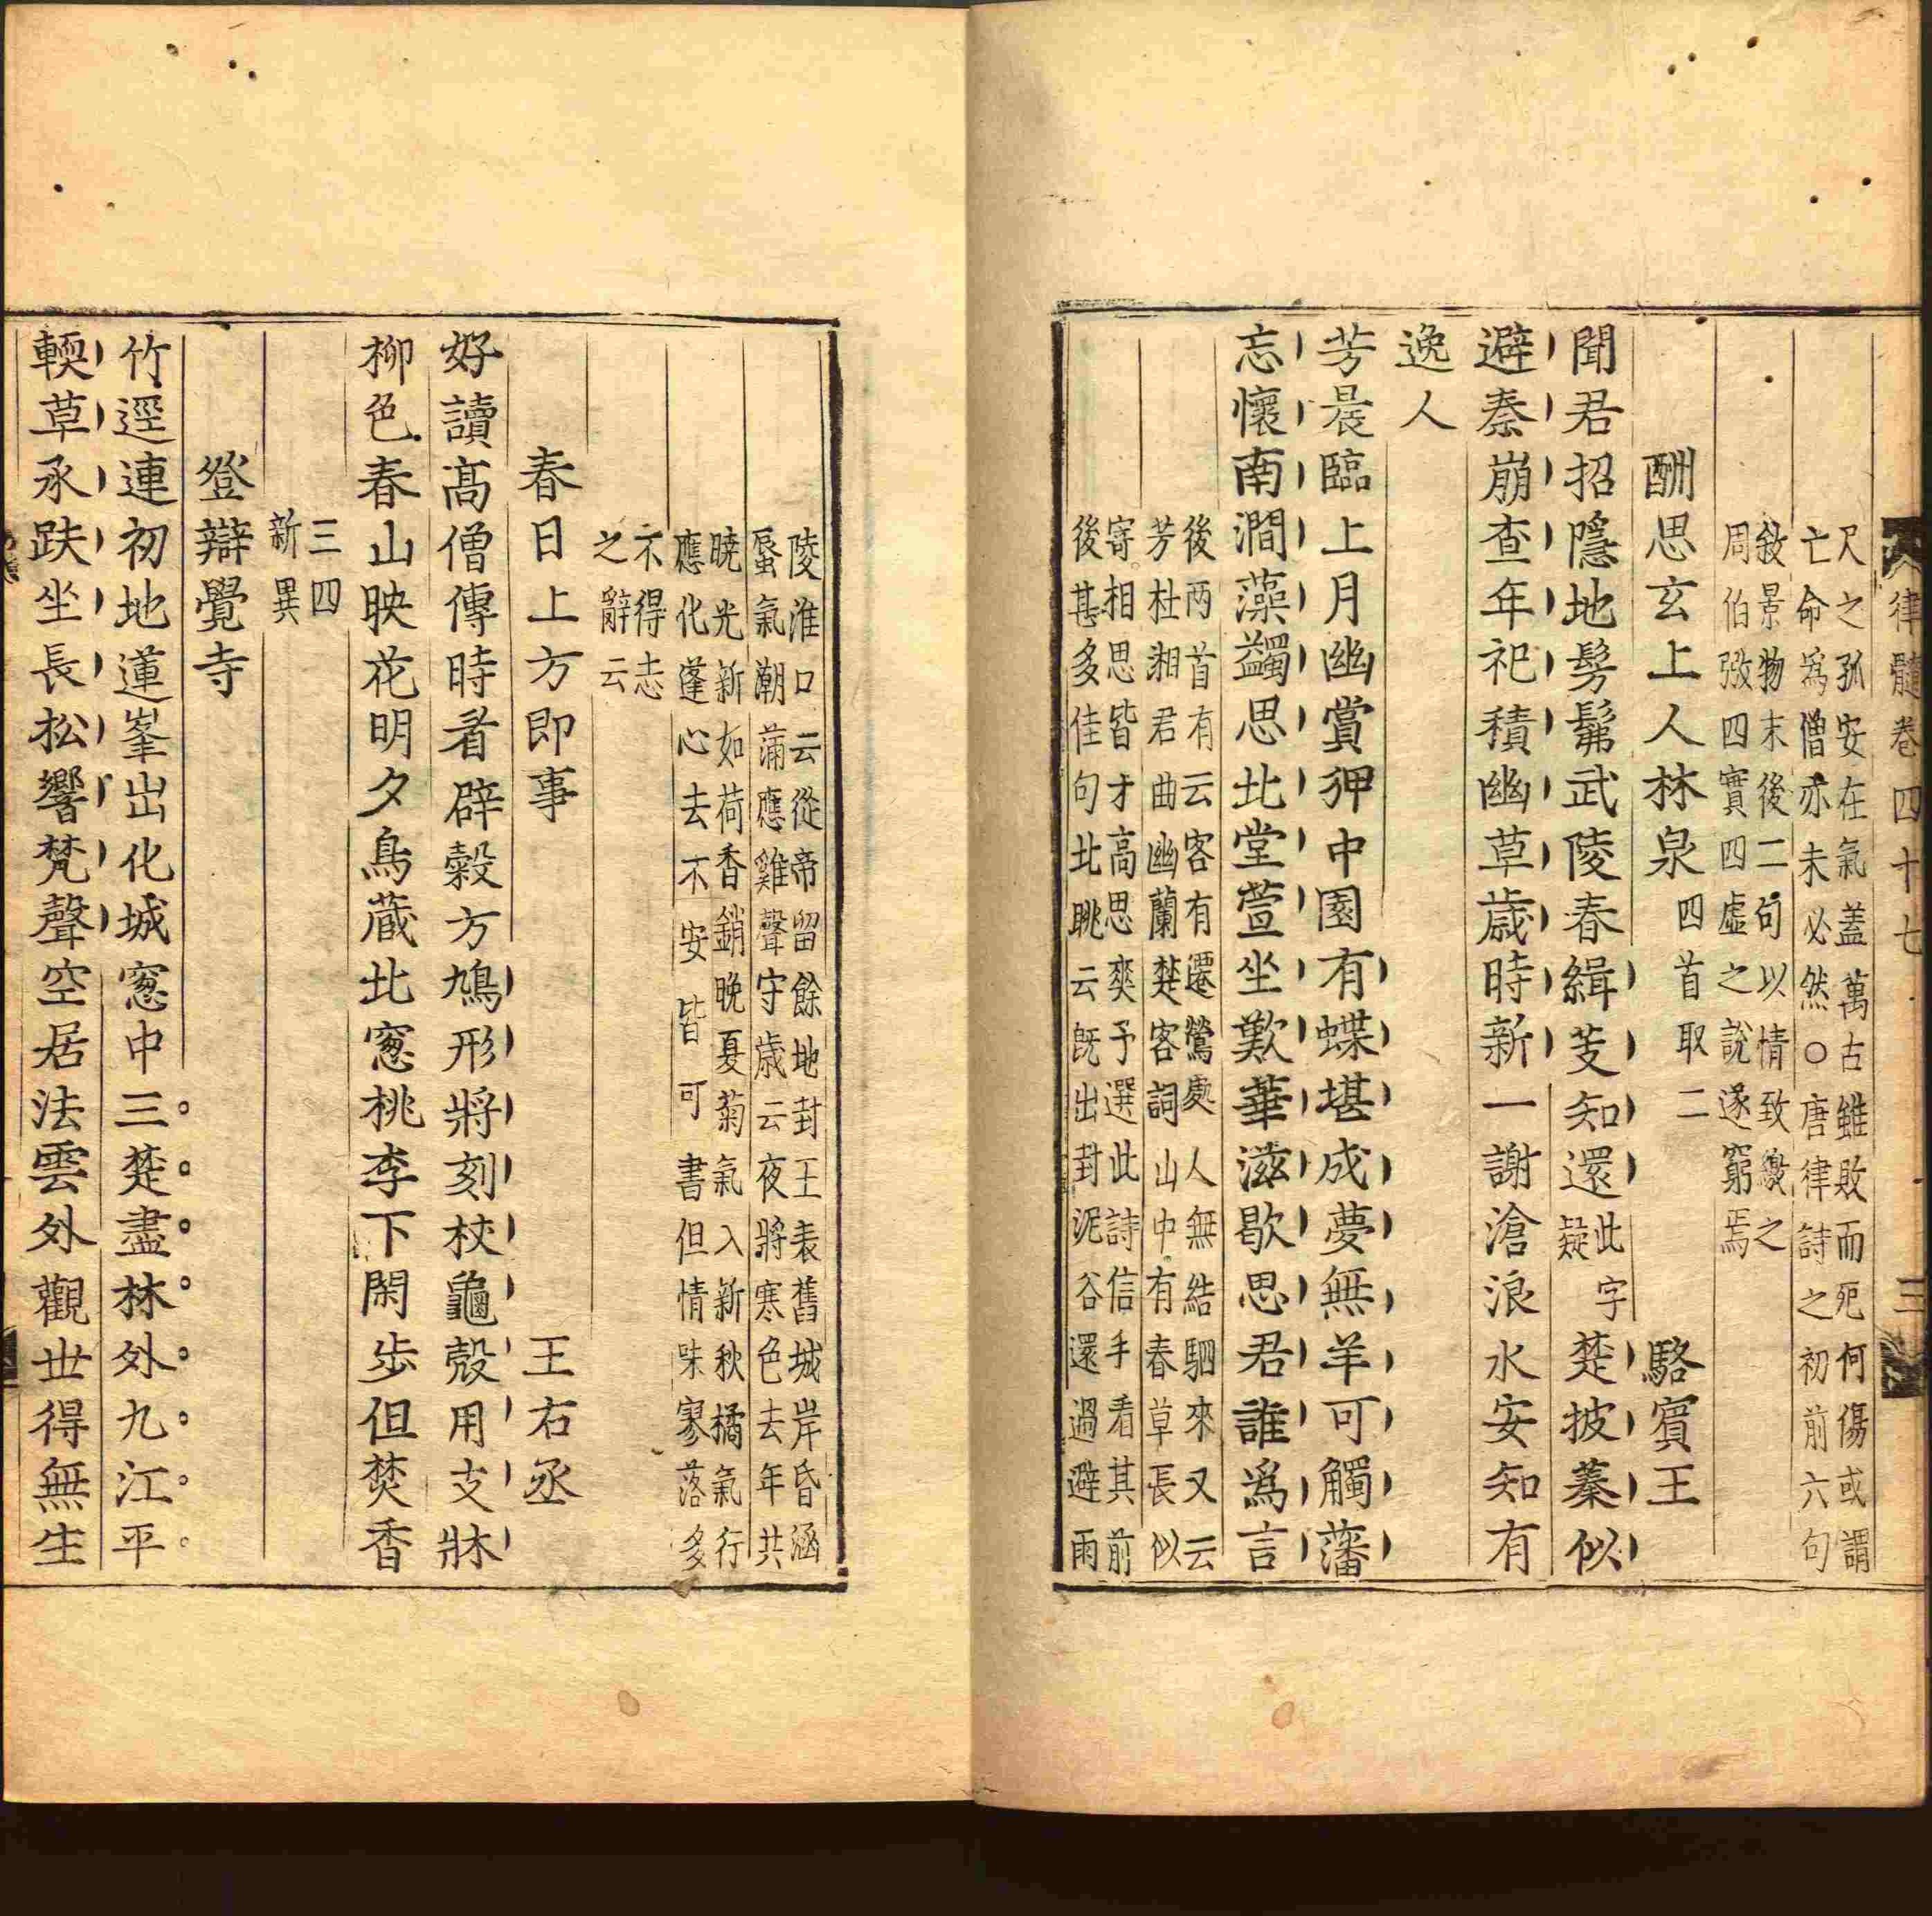 律髓卷四十七　三
尺之孤安在氣蓋萬古雖敗而死何傷或謂
亡命爲僧亦未必然○唐律詩之初前六句
敘景物末後二句以情致繳之
周伯弜四實四虛之說遂窮焉
酬思玄上人林泉四首取二　駱賓王
聞君招隱地髣髴武陵春緝芰知還此字疑楚披蓁似
避秦崩查年祀積幽草歲時新一謝滄浪水安知有
逸人
芳晨臨上月幽賞狎中園有蝶堪成夢無羊可觸藩
忘懷南澗藻蠲思北堂萱坐歎華滋歇思君誰爲言
後兩首有云客有遷鶯處人無結駟來又云
芳杜湘君曲幽蘭楚客詞山中有春草長似
寄相思皆才高思爽予選此詩信手看其前
後甚多佳句北眺云既出封泥谷還過避雨
陵淮口云從帝留餘地封王表舊城岸昏涵
蜃氣潮蒲應雞聲守歲云夜將寒色去年共
曉光新如荷香銷晚夏菊氣入新秋橘氣行
應化蓬心去不安皆可書但情味寥落多
不得志
之辭云
春日上方即事　王右丞
好讀高僧傳時看辟穀方鳩形將刻杖龜殼用支牀
柳色春山映花明夕鳥藏北窻桃李下閑步但焚香
三四
新異
登辯覺寺
竹逕連初地蓮峯出化城窻中三楚盡林外九江平
輭草承趺坐長松響梵聲空居法雲外觀世得無生